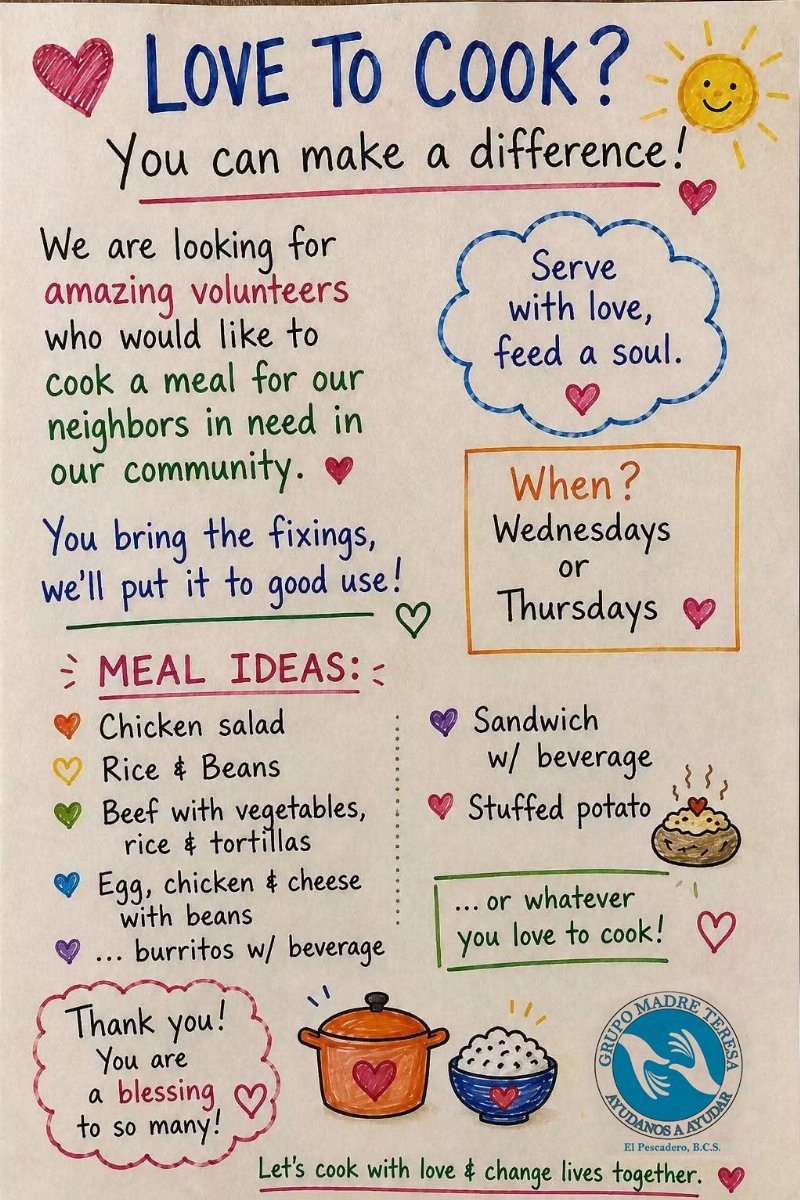 LOVE TO COOK?
You can make a difference!
We are looking for
amazing volunteers
who would like to
cook a meal for our
neighbors in need in
our community.
You bring the fixings,
we'll put it to good use!
Serve
with love,
feed a soul.
When?
Wednesdays
or
Thursdays
MEAL IDEAS:
Chicken salad
Rice & Beans
Beef with vegetables,
rice & tortillas
Egg, chicken & cheese
with beans
... burritos w/ beverage
Sandwich
w/ beverage
Stuffed potato
... or whatever
you love to cook!
Thank you!
You are
a blessing
to so many!
GRUPO MADRE TERESA
AYUDANOS A AYUDAR
El Pescadero, B.C.S.
Let's cook with love & change lives together.